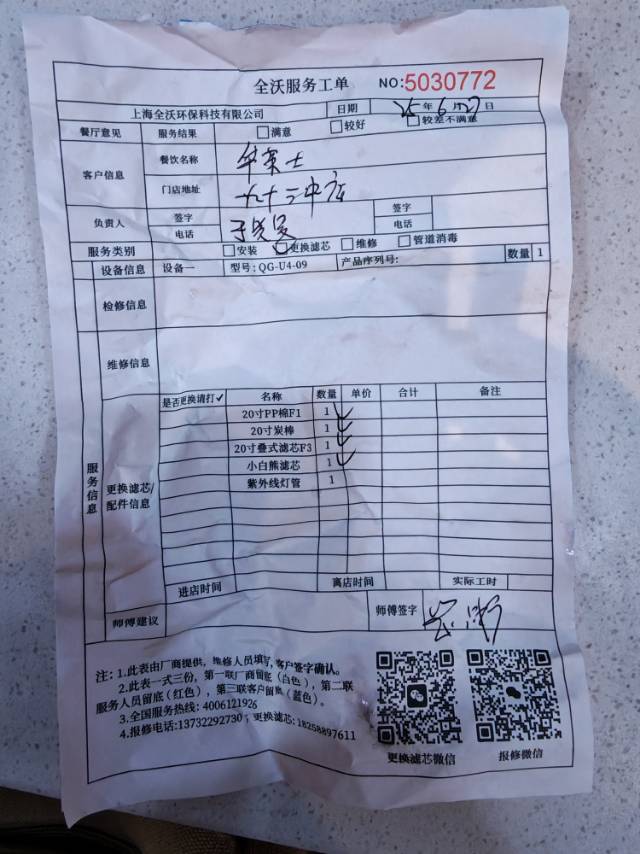 全沃服务工单 NO:5030772
上海全沃环保科技有限公司 日期 25年6月27日
餐厅意见 服务结果 □满意 □较好 □较差不满意
客户信息 餐饮名称 华莱士
门店地址 九十三中店
负责人 签字 签字
电话 电话
服务类别 □安装 □更换滤芯 □维修 □管道消毒
服务信息
设备信息 设备一 型号:QG-U4-09 产品序列号: 数量 1
检修信息
维修信息
更换滤芯/配件信息
是否更换请打✓ 名称 数量 单价 合计 备注
20寸PP棉F1 1 ✓
20寸炭棒 1 ✓
20寸叠式滤芯F3 1 ✓
小白熊滤芯 1 ✓
紫外线灯管 1
进店时间 离店时间 实际工时
师傅建议 师傅签字
注:1.此表由厂商提供,维修人员填写,客户签字确认。
2.此表一式三份,第一联厂商留底(白色),第二联
服务人员留底(红色),第三联客户留底(蓝色)。
3.全国服务热线:4006121926
4.报修电话:13732292730;更换滤芯:18258897611
更换滤芯微信 报修微信